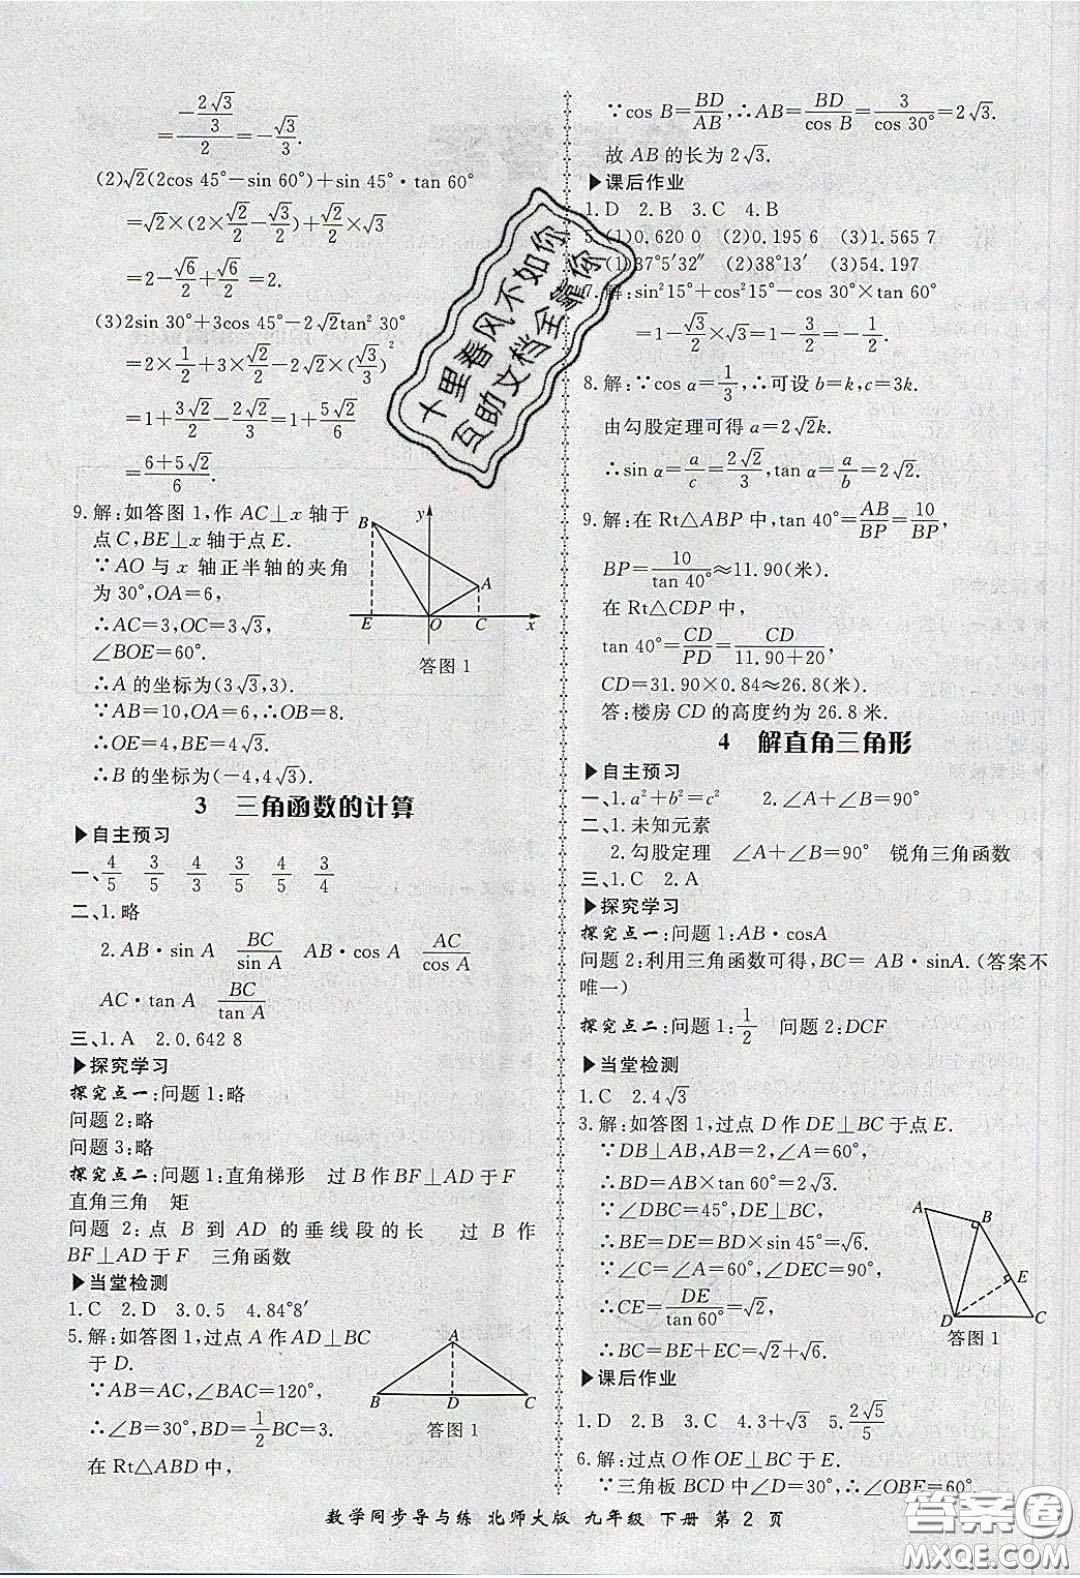 =(-2√3/3)/2=-√3/3.
(2)√2(2cos 45°-sin 60°)+sin 45°·tan 60°
=√2×(2×√2/2-√3/2)+√2/2×√3
=2-√6/2+√6/2=2.
(3)2sin 30°+3cos 45°-2√2tan² 30°
=2×1/2+3×√2/2-2√2×(√3/3)²
=1+3√2/2-2√2/3=1+5√2/6
=(6+5√2)/6.
9.解:如答图1,作AC⊥x轴于
点C,BE⊥x轴于点E.
∵AO与x轴正半轴的夹角
为30°,OA=6,
∴AC=3,OC=3√3,
∠BOE=60°.
∴A的坐标为(3√3,3).
∵AB=10,OA=6,∴OB=8.
∴OE=4,BE=4√3.
∴B的坐标为(-4,4√3).
B y A E O C x
答图1
3 三角函数的计算
▶自主预习
一、4/5 3/5 4/3 3/5 4/5 3/4
二、1.略
2.AB·sin A BC/sin A AB·cos A AC/cos A
AC·tan A BC/tan A
三、1.A 2.0.642 8
▶探究学习
探究点一:问题1:略
问题2:略
问题3:略
探究点二:问题1:直角梯形 过B作BF⊥AD于F
直角三角 矩
问题2:点B到AD的垂线段的长 过B作
BF⊥AD于F 三角函数
▶当堂检测
1.C 2.D 3.0.5 4.84°8′
5.解:如答图1,过点A作AD⊥BC
于D.
∵AB=AC,∠BAC=120°,
∴∠B=30°,BD=1/2BC=3.
在Rt△ABD中,
A B D C
答图1
∵cos B=BD/AB,∴AB=BD/cos B=3/cos 30°=2√3.
故AB的长为2√3.
▶课后作业
1.D 2.B 3.C 4.B
5.(1)0.620 0 (2)0.195 6 (3)1.565 7
(1)37°5′32″ (2)38°13′ (3)54.197
7.解:sin²15°+cos²15°-cos 30°×tan 60°
=1-√3/2×√3=1-3/2=-1/2.
8.解:∵cos α=1/3,∴可设b=k,c=3k.
由勾股定理可得a=2√2k.
∴sin α=a/c=2√2/3,tan α=a/b=2√2.
9.解:在Rt△ABP中,tan 40°=AB/BP=10/BP,
BP=10/tan 40°≈11.90(米).
在Rt△CDP中,
tan 40°=CD/PD=CD/(11.90+20),
CD=31.90×0.84≈26.8(米).
答:楼房CD的高度约为26.8米.
4 解直角三角形
▶自主预习
一、1.a²+b²=c² 2.∠A+∠B=90°
二、1.未知元素
2.勾股定理 ∠A+∠B=90° 锐角三角函数
三、1.C 2.A
▶探究学习
探究点一:问题1:AB·cosA
问题2:利用三角函数可得,BC=AB·sinA.(答案不
唯一)
探究点二:问题1:1/2 问题2:DCF
▶当堂检测
1.C 2.4√3
3.解:如答图1,过点D作DE⊥BC于点E.
∵DB⊥AB,AB=2,∠A=60°,
∴BD=AB×tan 60°=2√3.
∵∠DBC=45°,DE⊥BC,
∴BE=DE=BD×sin 45°=√6.
∵∠C=∠A=60°,∠DEC=90°,
∴CE=DE/tan 60°=√2,
∴BC=BE+EC=√2+√6.
A B E D C
答图1
▶课后作业
1.D 2.B 3.C 4.3+√3 5.2√5/5
6.解:过点O作OE⊥BC于E.
∵三角板BCD中∠D=30°,∴∠OBE=60°.
数学同步导与练 北师大版 九年级 下册 第2页
十里春风不如你
互助文档全靠你
答案圈
MXQE.COM